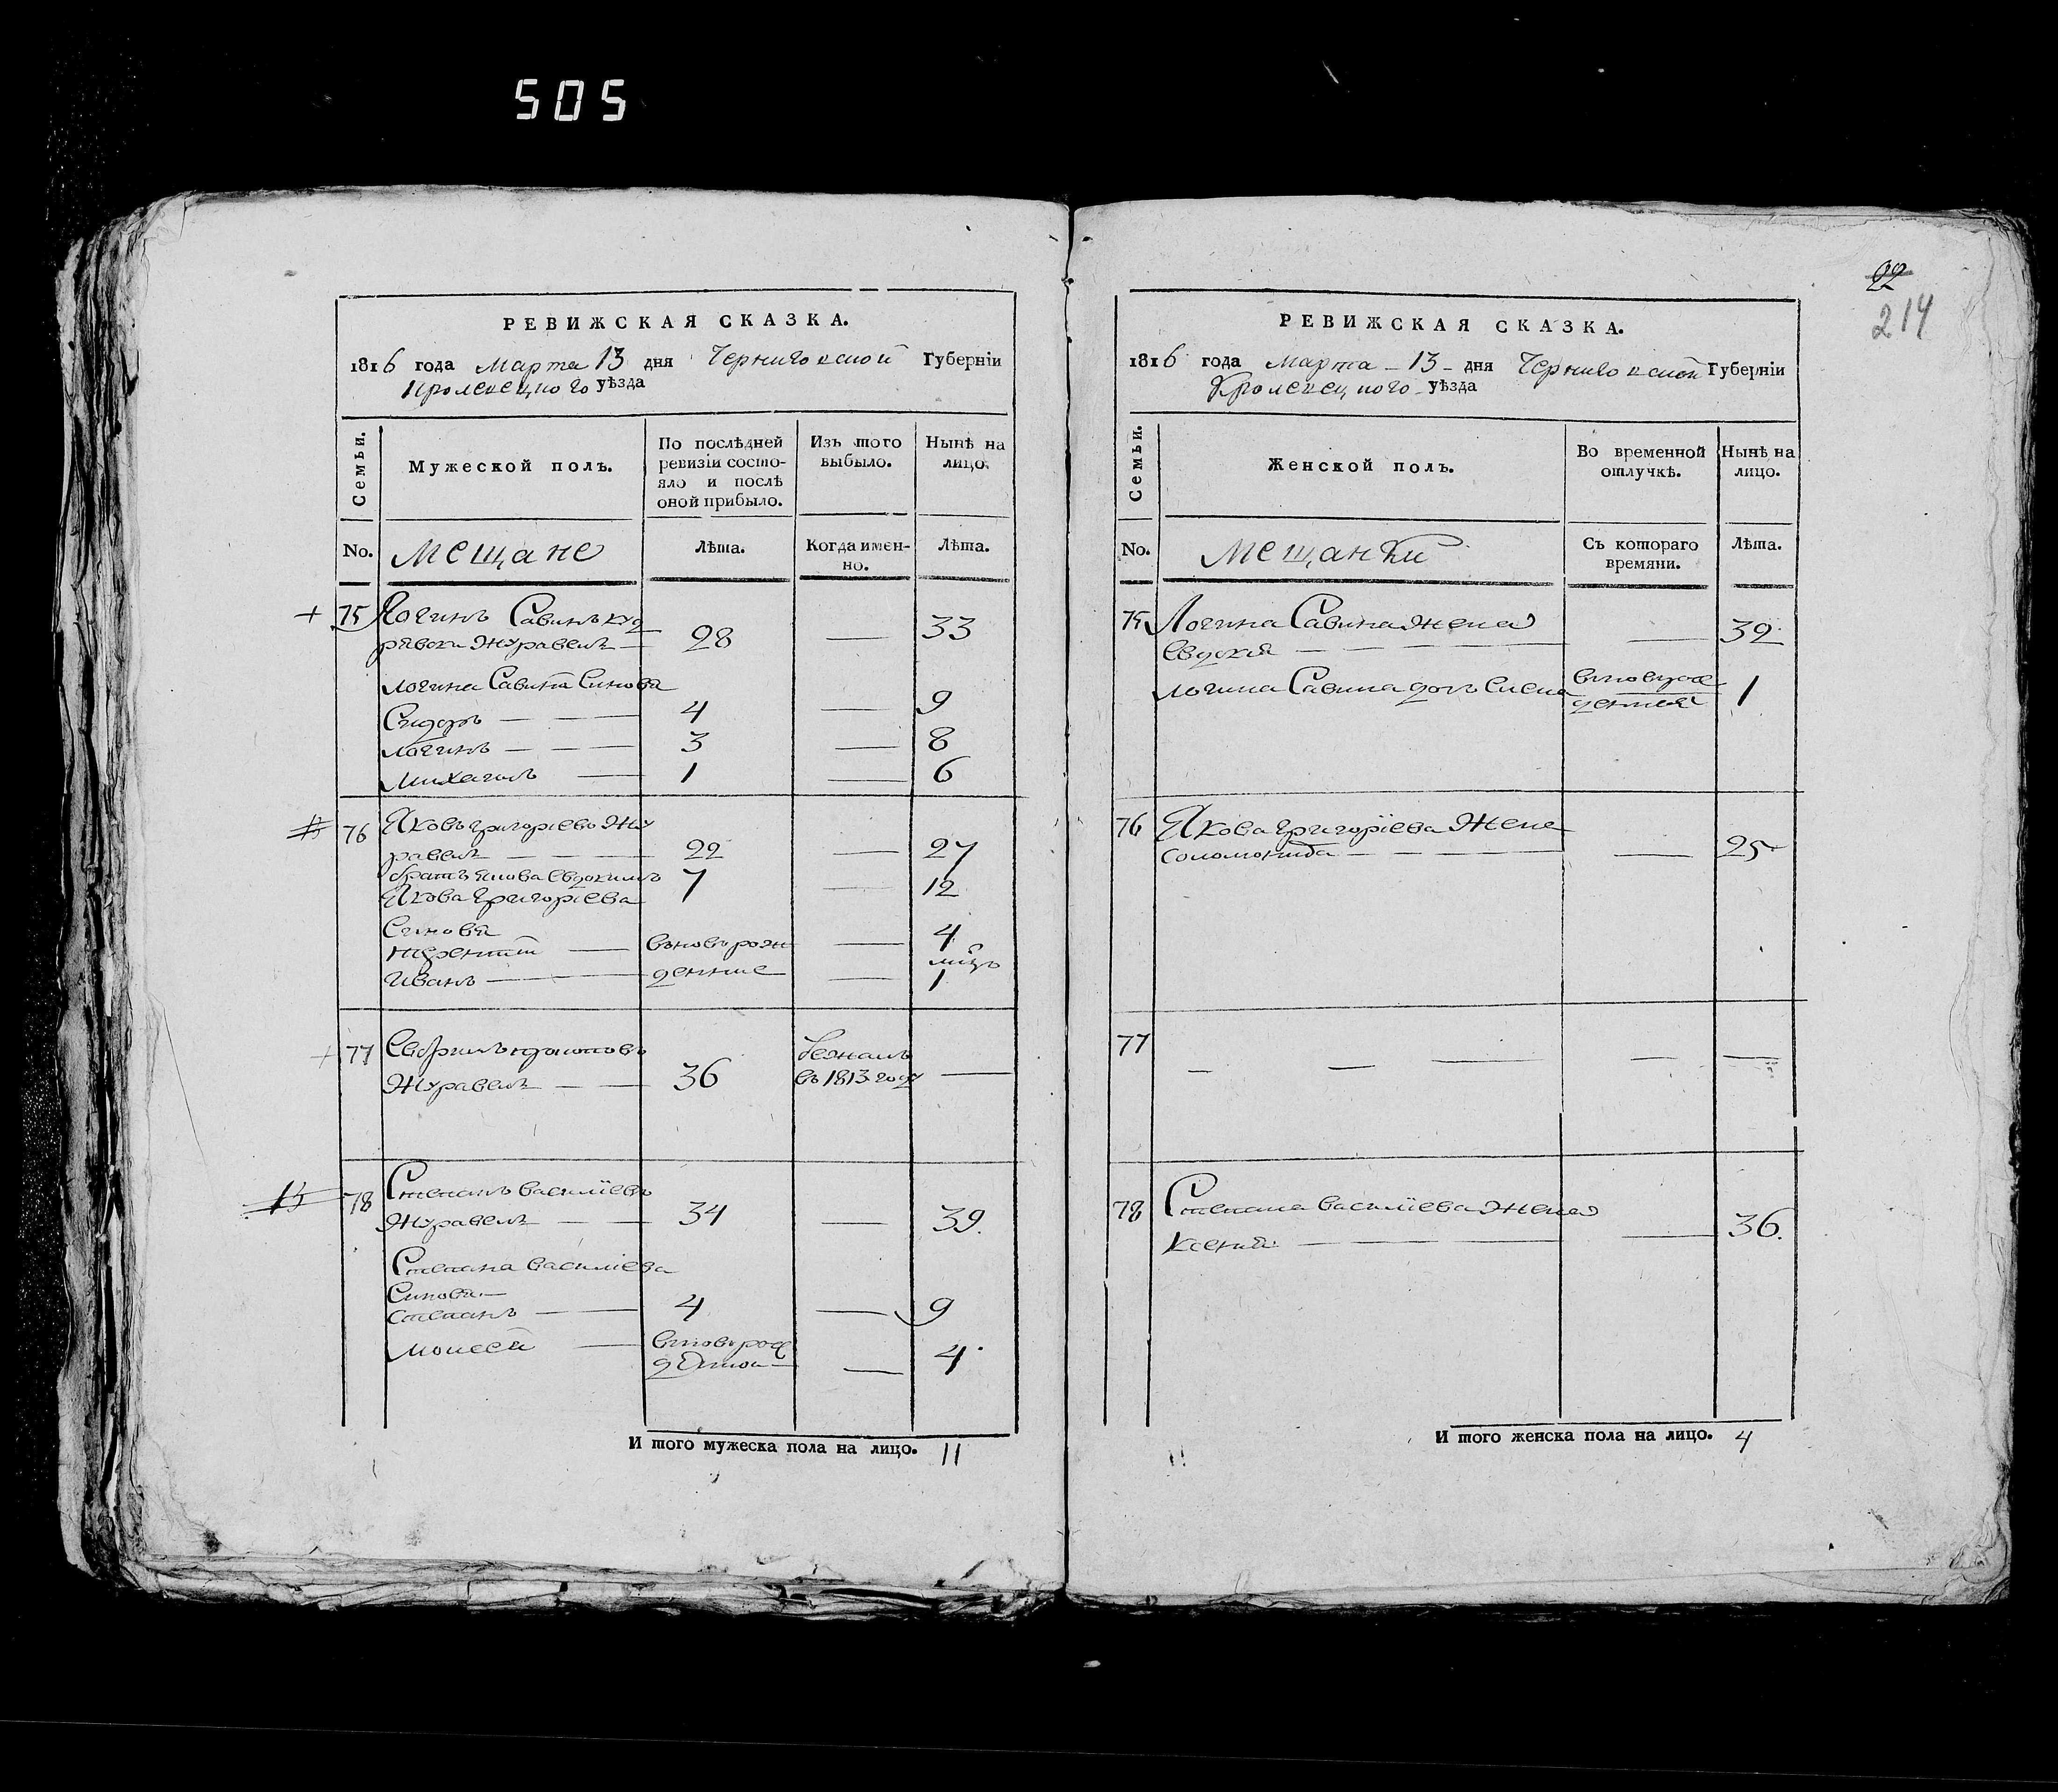 505
РЕВИЖСКАЯ СКАЗКА.
1816 года Марта 13 дня Черниговской Губерніи
Кролевецкого уѣзда
Семьи.
Мужеской полъ.
По послѣдней ревизіи состо-
яло и послѣ
оной прибыло.
Изъ того
выбыло.
Нынѣ на
лицо.
No.
Мещане
Лѣта.
Когда имен-
но.
Лѣта.
75 Логинъ Савинъ
Журавель 28 — 33
Логина Савина Синовя
Сидоръ — 4 — 9
Логинъ — 3 — 8
Михаилъ — 1 — 6
76 Яковъ Григоріевъ Жу
равель — 22 — 27
братъ Якова Евдокимъ 7 — 12
Якова Григоріева
Синовя
Терентій — вновь рож — 4
Иванъ — денние — 1
77
Журавель — 36
бежалъ
въ 1813 году —
78 Степанъ Василіевъ
Журавель — 34 — 39.
Степана Василіева
Синовя —
Степанъ — 4 — 9
Моисей — вновьрож
— 4
И того мужеска пола на лицо. 11
92
214
РЕВИЖСКАЯ СКАЗКА.
1816 года Марта — 13 — дня Черниговской Губерніи
Кролевецкого уѣзда
Семьи.
Женской полъ.
Во временной
отлучкѣ.
Нынѣ на
лицо.
No.
Мещанки
Съ котораго
времяни.
Лѣта.
75 Логина Савина Жена
Евдокія — 32
Логина Савина дочь Елена 1
76 Якова Григоріева Жена
Соломонида — 25
77 — — — — —
78 Степана Василіева Жена
Ксенія — 36.
И того женска пола на лицо. 4